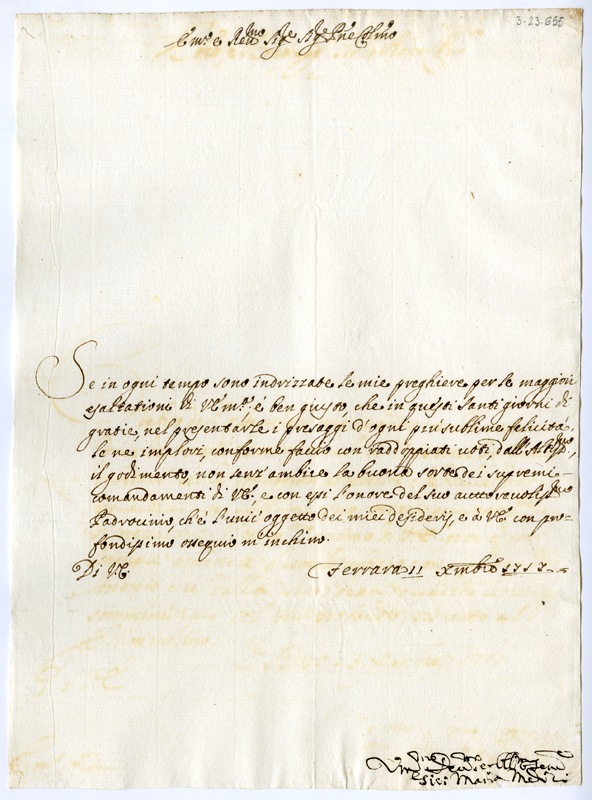 3-23-655
E.mo e Re.mo Sig.e Sig.e P.ne Col.mo
Se in ogni tempo sono indrizzate le mie preghiere per le maggiori
esaltationi di V.E.ma, è ben giusto, che in questi santi giorni di
gratie, nel presentarle i presaggi d'ogni più sublime felicità
le ne implori, conforme faccio con raddoppiati voti dall'Altiss.mo,
il godimento, non senz'ambire la buona sorte dei supremi
comandamenti di V.E., e con essi l'onore del suo auttorevoliss.mo
Padrocinio, ch'è l'unic'oggetto dei miei desiderij, e à V.E. con pro-
fondissimo ossequio m'inchino.
Di V.E. Ferrara 11 Xmbre 1717
Maria